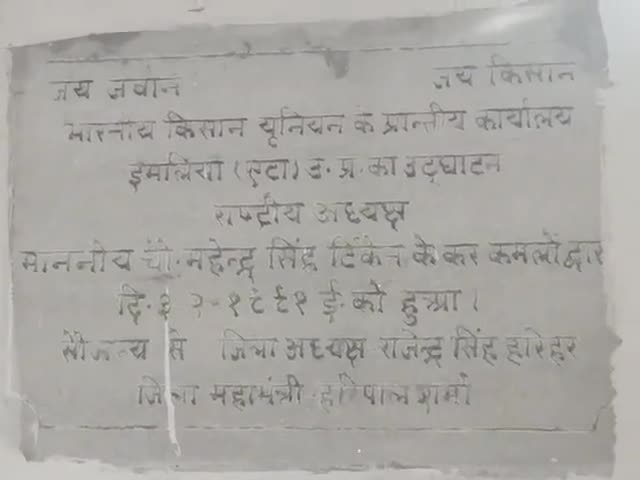 जय जवान जय किसान
भारतीय किसान यूनियन के प्रान्तीय कार्यालय
इमलिया (एटा) उ. प्र. का उद्घाटन
राष्ट्रीय अध्यक्ष
माननीय चौ. महेन्द्र सिंह टिकैत के कर कमलों द्वारा
दि. ई. को हुआ।
सौजन्य से जिला अध्यक्ष राजेन्द्र सिंह
जिला महामंत्री हरिपाल शर्मा